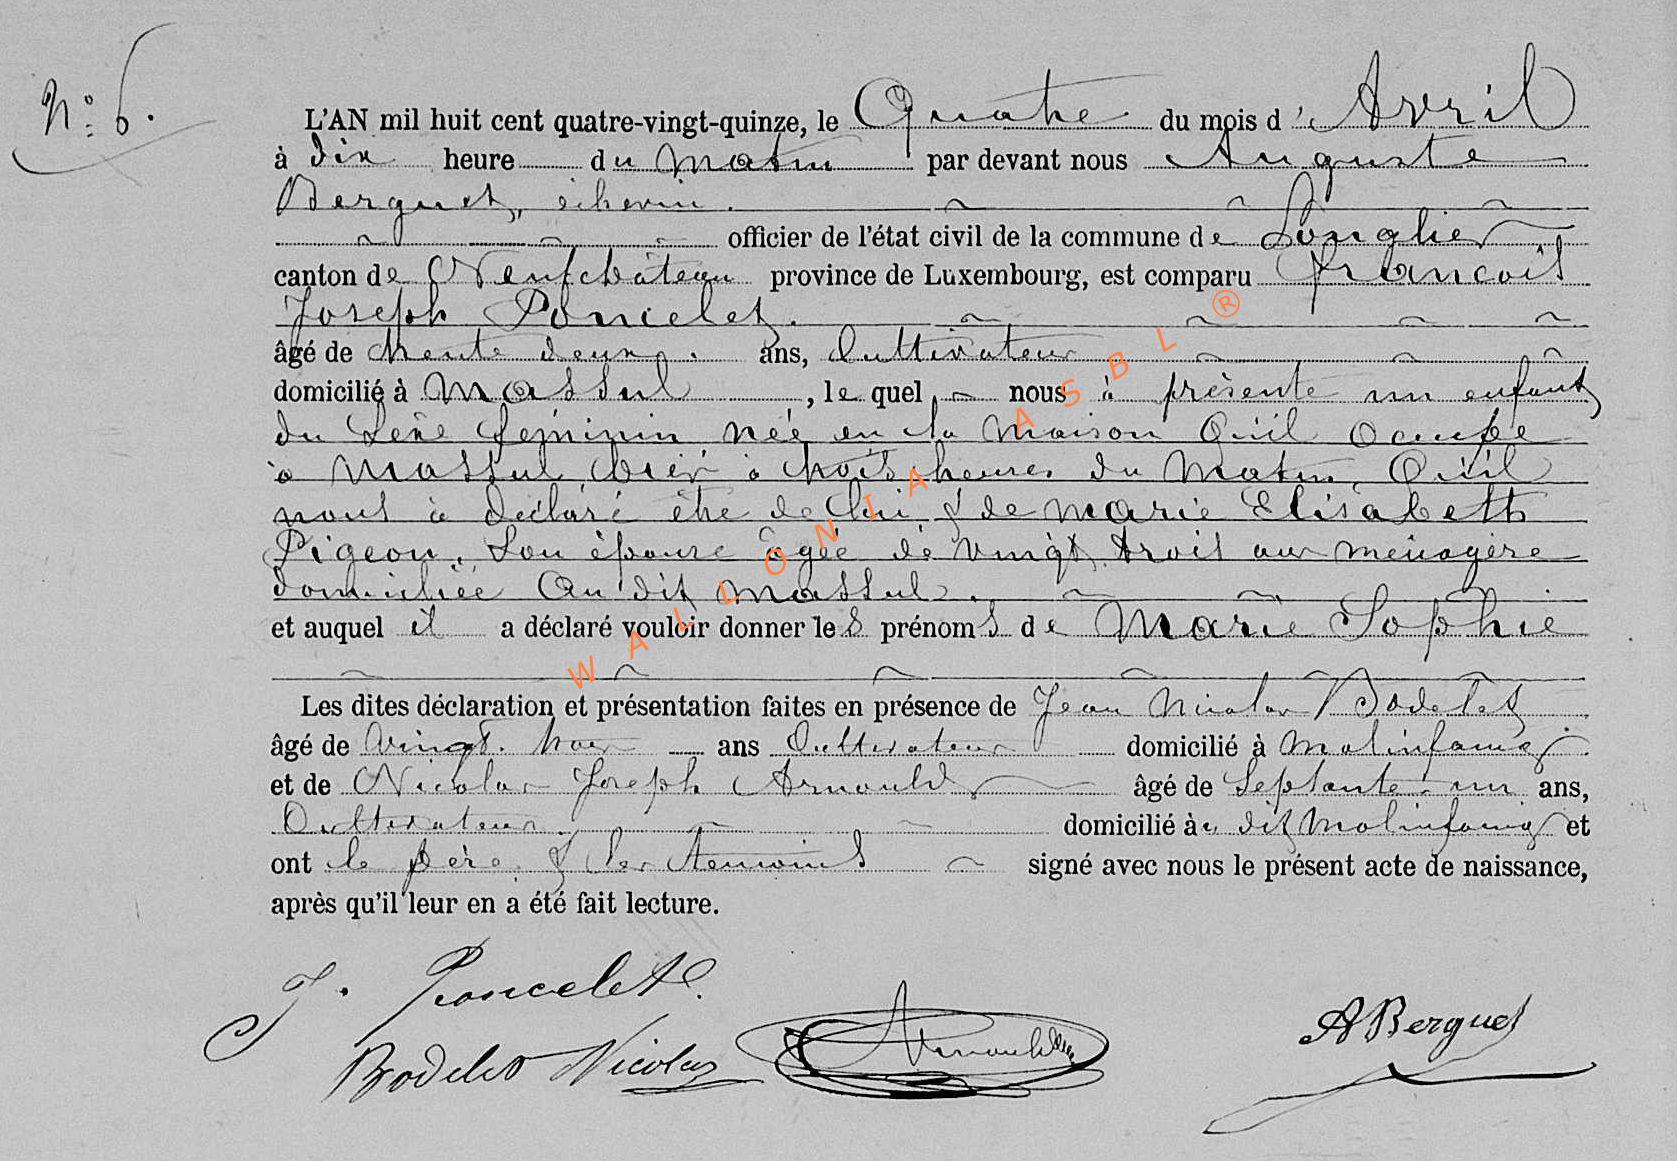 N° 6.
L'AN mil huit cent quatre-vingt-quinze, le Quatre du mois d' Avril
à dix heure du matin par devant nous Auguste
Berguet, échevin.
officier de l'état civil de la commune de Longlier
canton de Neufchâteau province de Luxembourg, est comparu François
Joseph Poncelet.
âgé de trente deux. ans, Cultivateur
domicilié à Massul, le quel nous à présenté un enfant
du Sexe féminin née en la maison Qu'il Occupe
à Massul, hier à trois heures du Matin, Qu'il
nous à déclaré être de lui & de Marie Elisabeth
Pigeon, Son épouse âgée de vingt trois ans ménagère
domiciliée Au dit Massul.
et auquel il a déclaré vouloir donner le S prénom S de Marie Sophie
Les dites déclaration et présentation faites en présence de Jean Nicolas Bodelet
âgé de Vingt. trois ans Cultivateur domicilié à Molinfaing
et de Nicolas Joseph Arnould âgé de Septante-un ans,
Cultivateur. domicilié àu dit Molinfaing et
ont le père & les témoins signé avec nous le présent acte de naissance,
après qu'il leur en a été fait lecture.
J. Poncelet
Bodelet Nicolas Arnould ABerguet
WALLONIA ASBL ®